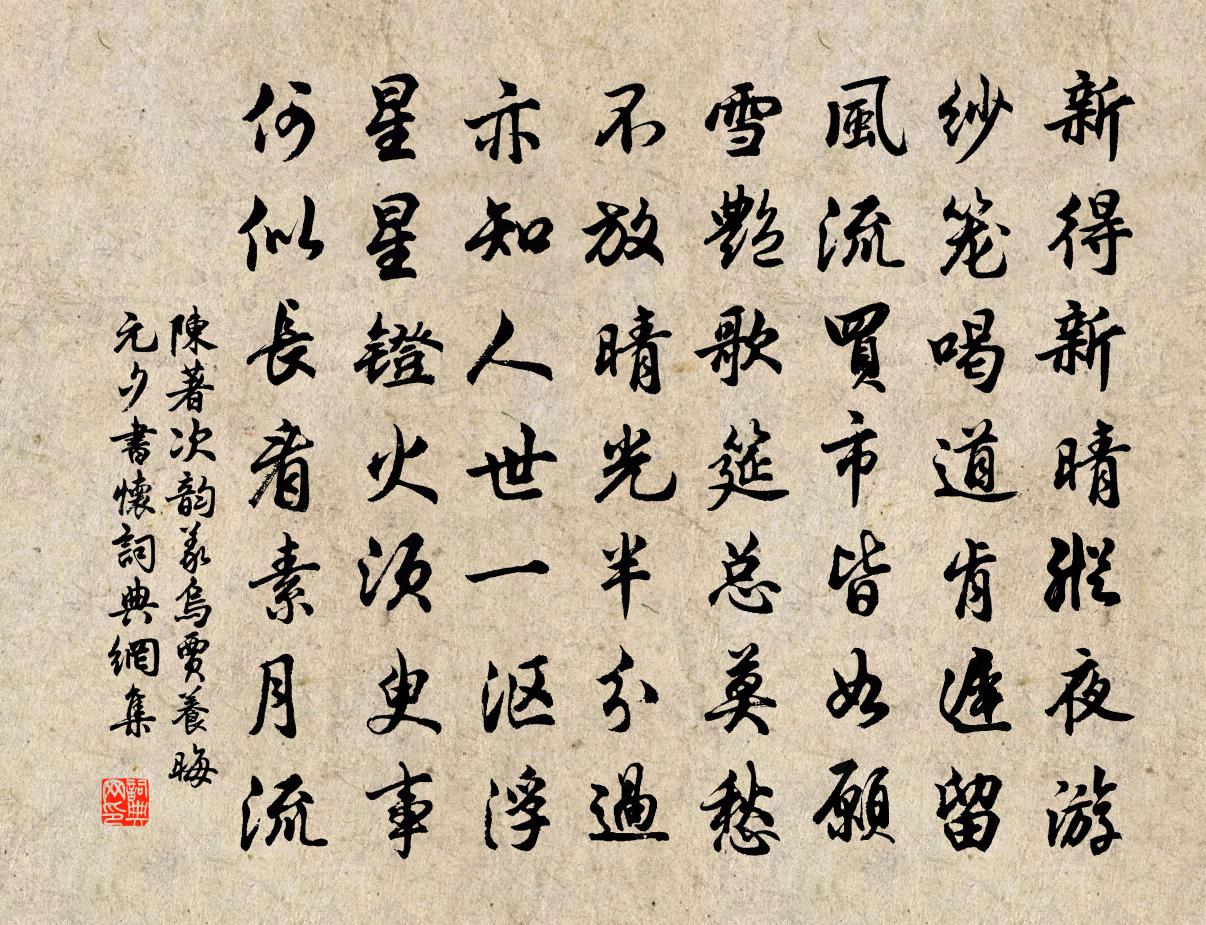 新得新晴縱夜游
紗笼喝道肯遲留
風流買市皆如願
雪艷歌筵总莫愁
不放晴光半分過
亦知人世一沤浮
星星鐙火須臾事
何似長看素月流
陳著次韵義烏賈養晦
元夕書懷詞典網集
詞典
网印